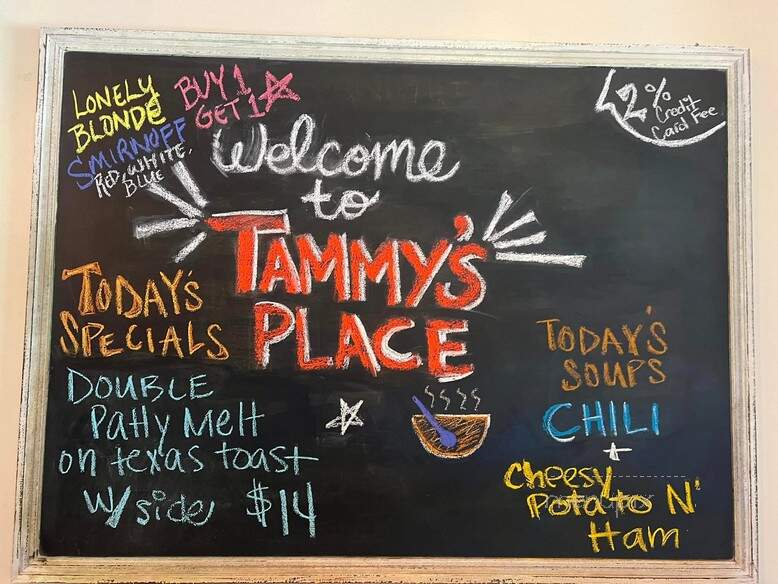 LONELY
BLONDE
SMIRNOFF
RED, WHITE,
BLUE
BUY 1
GET 1
2%
Credit
Card Fee
Welcome
to
TAMMY'S
PLACE
TODAY'S
SPECIALS
DOUBLE
Patty Melt
on texas toast
w/ side $14
TODAY'S
SOUPS
CHILI
+
Cheesy
Potato N'
Ham